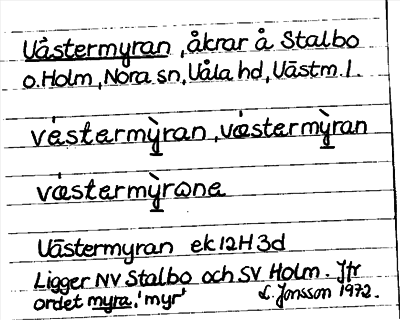 Västermyran, åkrar å Stalbo
o. Holm, Nora sn, Våla hd, Västm. l.
véstermỳran, væ̀stermỳran
væ̀stermỳrωna
Västermyran ek 12H 3d
Ligger NV Stalbo och SV Holm. Jfr
ordet myra, 'myr' L. Jonsson 1972.